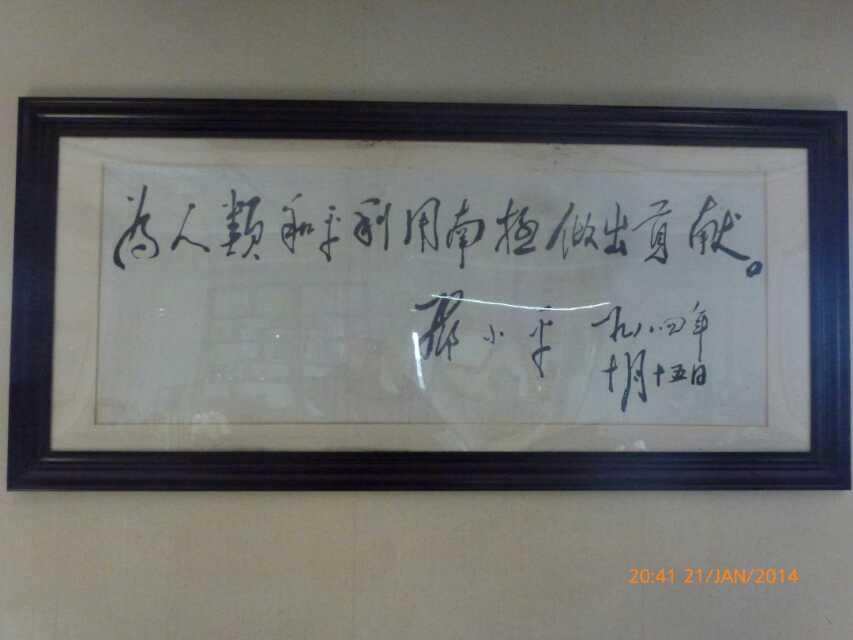 為人類和平利用南极做出贡献。
邓小平 一九八四年
十月十五日
20:41 21/JAN/2014